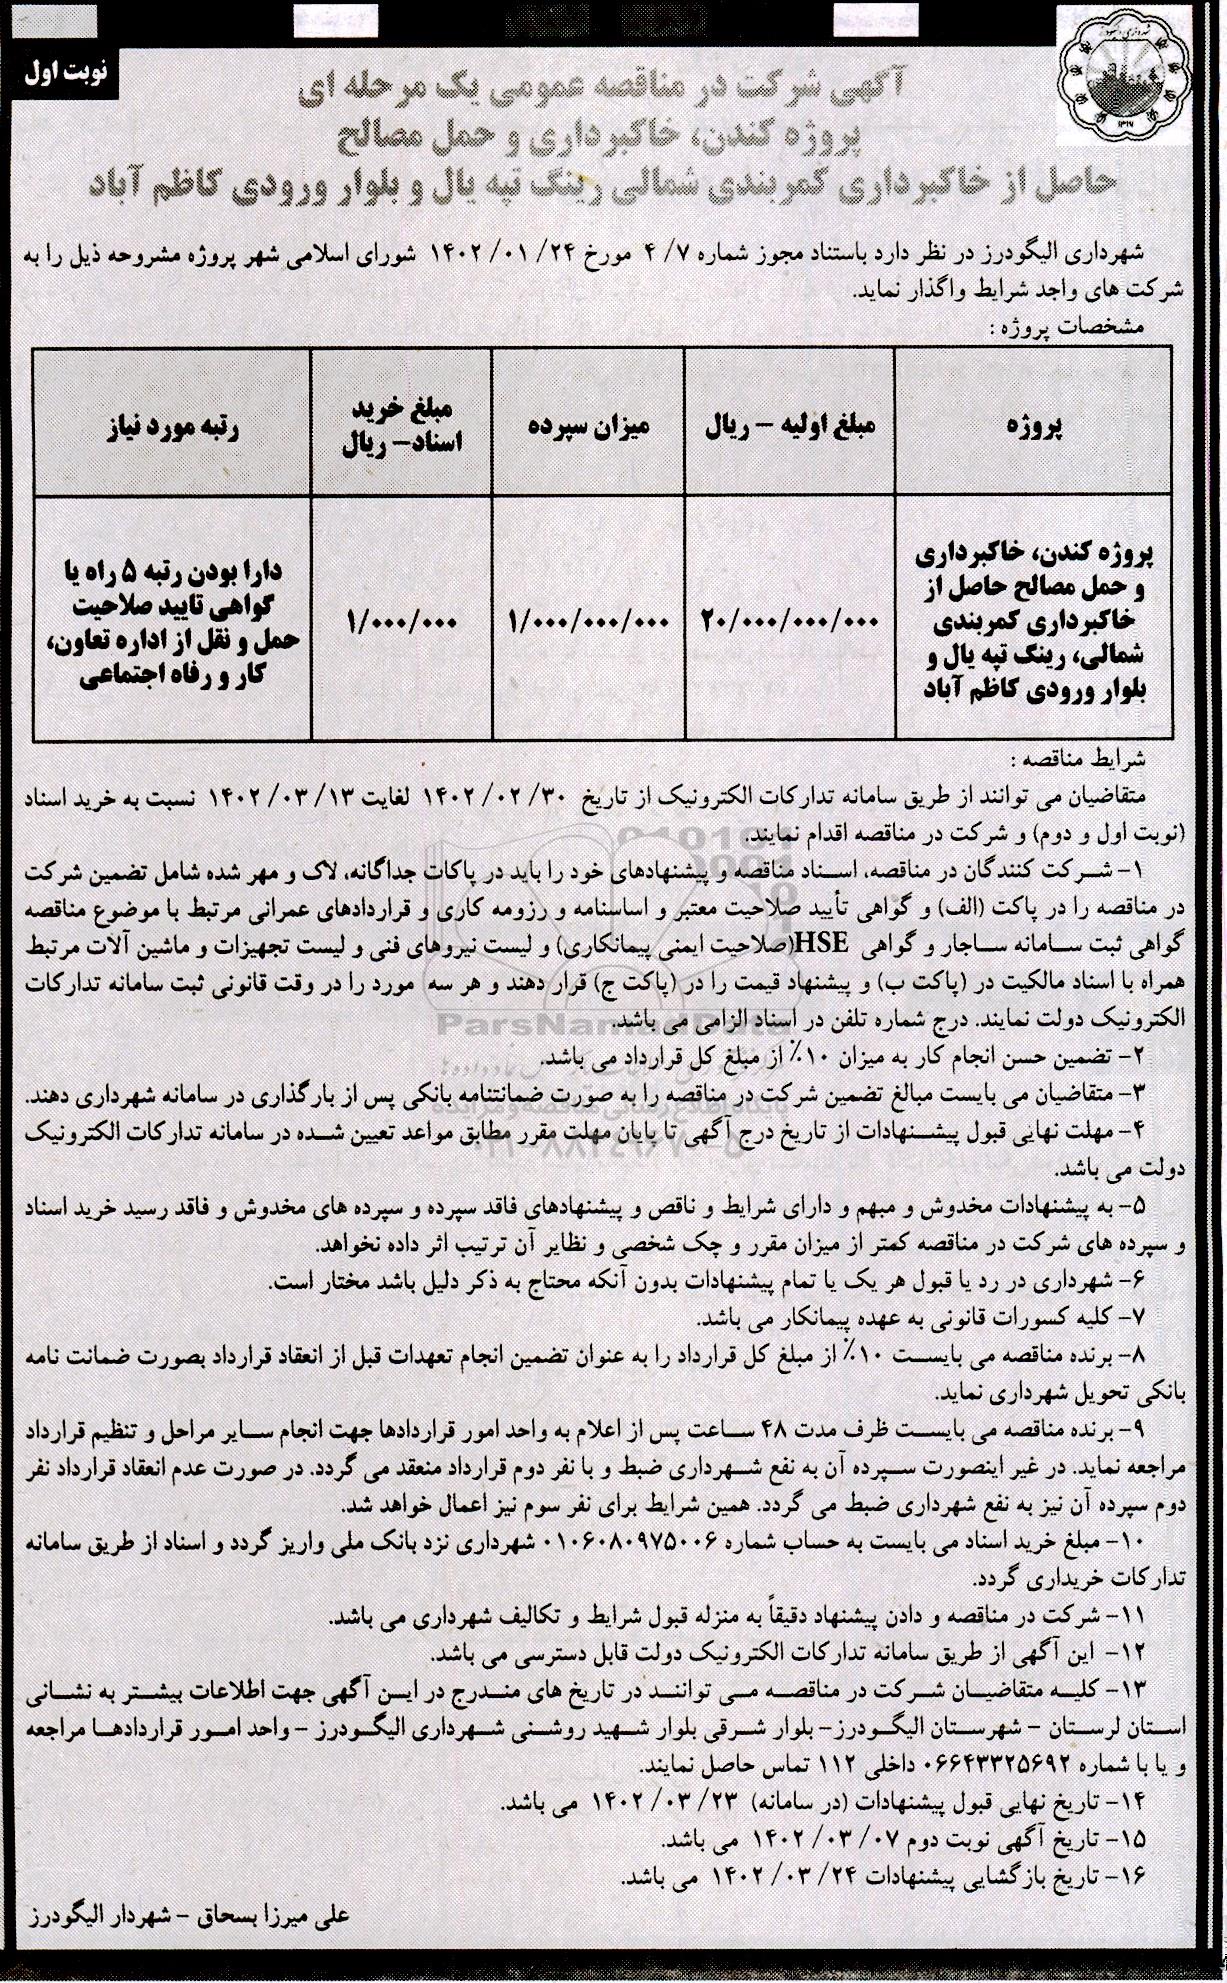 نوبت اول
آگهی شرکت در مناقصه عمومی یک مرحله ای
پروژه کندن، خاکبرداری و حمل مصالح
حاصل از خاکبرداری کمربندی شمالی رینگ تپه یال و بلوار ورودی کاظم آباد
شهرداری الیگودرز در نظر دارد باستناد مجوز شماره ۴/۷ مورخ ۱۴۰۲/۰۱/۲۴ شورای اسلامی شهر پروژه مشروحه ذیل را به
شرکت های واجد شرایط واگذار نماید.
مشخصات پروژه :
پروژه
مبلغ اولیه – ریال
میزان سپرده
مبلغ خرید
اسناد– ریال
رتبه مورد نیاز
پروژه کندن، خاکبرداری
و حمل مصالح حاصل از
خاکبرداری کمربندی
شمالی، رینگ تپه یال و
بلوار ورودی کاظم آباد
۲۰/۰۰۰/۰۰۰/۰۰۰
۱/۰۰۰/۰۰۰/۰۰۰
۱/۰۰۰/۰۰۰
دارا بودن رتبه ۵ راه یا
گواهی تایید صلاحیت
حمل و نقل از اداره تعاون،
کار و رفاه اجتماعی
شرایط مناقصه :
متقاضیان می توانند از طریق سامانه تدارکات الکترونیک از تاریخ ۱۴۰۲/۰۲/۳۰ لغایت ۱۴۰۲/۰۳/۱۳ نسبت به خرید اسناد
(نوبت اول و دوم) و شرکت در مناقصه اقدام نمایند.
۱– شرکت کنندگان در مناقصه، اسناد مناقصه و پیشنهادهای خود را باید در پاکات جداگانه، لاک و مهر شده شامل تضمین شرکت
در مناقصه را در پاکت (الف) و گواهی تأیید صلاحیت معتبر و اساسنامه و رزومه کاری و قراردادهای عمرانی مرتبط با موضوع مناقصه
گواهی ثبت سامانه ساجار و گواهی HSE(صلاحیت ایمنی پیمانکاری) و لیست نیروهای فنی و لیست تجهیزات و ماشین آلات مرتبط
همراه با اسناد مالکیت در (پاکت ب) و پیشنهاد قیمت را در (پاکت ج) قرار دهند و هر سه مورد را در وقت قانونی ثبت سامانه تدارکات
الکترونیک دولت نمایند. درج شماره تلفن در اسناد الزامی می باشد.
۲– تضمین حسن انجام کار به میزان ۱۰٪ از مبلغ کل قرارداد می باشد.
۳– متقاضیان می بایست مبالغ تضمین شرکت در مناقصه را به صورت ضمانتنامه بانکی پس از بارگذاری در سامانه شهرداری دهند.
۴– مهلت نهایی قبول پیشنهادات از تاریخ درج آگهی تا پایان مهلت مقرر مطابق مواعد تعیین شده در سامانه تدارکات الکترونیک
دولت می باشد.
۵– به پیشنهادات مخدوش و مبهم و دارای شرایط و ناقص و پیشنهادهای فاقد سپرده و سپرده های مخدوش و فاقد رسید خرید اسناد
و سپرده های شرکت در مناقصه کمتر از میزان مقرر و چک شخصی و نظایر آن ترتیب اثر داده نخواهد.
۶– شهرداری در رد یا قبول هر یک یا تمام پیشنهادات بدون آنکه محتاج به ذکر دلیل باشد مختار است.
۷– کلیه کسورات قانونی به عهده پیمانکار می باشد.
۸– برنده مناقصه می بایست ۱۰٪ از مبلغ کل قرارداد را به عنوان تضمین انجام تعهدات قبل از انعقاد قرارداد بصورت ضمانت نامه
بانکی تحویل شهرداری نماید.
۹– برنده مناقصه می بایست ظرف مدت ۴۸ ساعت پس از اعلام به واحد امور قراردادها جهت انجام سایر مراحل و تنظیم قرارداد
مراجعه نماید. در غیر اینصورت سپرده آن به نفع شهرداری ضبط و با نفر دوم قرارداد منعقد می گردد. در صورت عدم انعقاد قرارداد نفر
دوم سپرده آن نیز به نفع شهرداری ضبط می گردد. همین شرایط برای نفر سوم نیز اعمال خواهد شد.
۱۰– مبلغ خرید اسناد می بایست به حساب شماره ۰۱۰۶۰۸۰۹۷۵۰۰۶ شهرداری نزد بانک ملی واریز گردد و اسناد از طریق سامانه
تدارکات خریداری گردد.
۱۱– شرکت در مناقصه و دادن پیشنهاد دقیقاً به منزله قبول شرایط و تکالیف شهرداری می باشد.
۱۲– این آگهی از طریق سامانه تدارکات الکترونیک دولت قابل دسترسی می باشد.
۱۳– کلیه متقاضیان شرکت در مناقصه می توانند در تاریخ های مندرج در این آگهی جهت اطلاعات بیشتر به نشانی
استان لرستان – شهرستان الیگودرز– بلوار شرقی بلوار شهید روشنی شهرداری الیگودرز – واحد امور قراردادها مراجعه
و یا با شماره ۰۶۶۴۳۳۲۵۶۹۲ داخلی ۱۱۲ تماس حاصل نمایند.
۱۴– تاریخ نهایی قبول پیشنهادات (در سامانه) ۱۴۰۲/۰۳/۲۳ می باشد.
۱۵– تاریخ آگهی نوبت دوم ۱۴۰۲/۰۳/۰۷ می باشد.
۱۶– تاریخ بازگشایی پیشنهادات ۱۴۰۲/۰۳/۲۴ می باشد.
علی میرزا بسحاق – شهردار الیگودرز
ParsNamadData
پایگاه اطلاع رسانی مناقصه و مزایده
۰۲۱-۸۸۳۴۹۶۷۰-۵